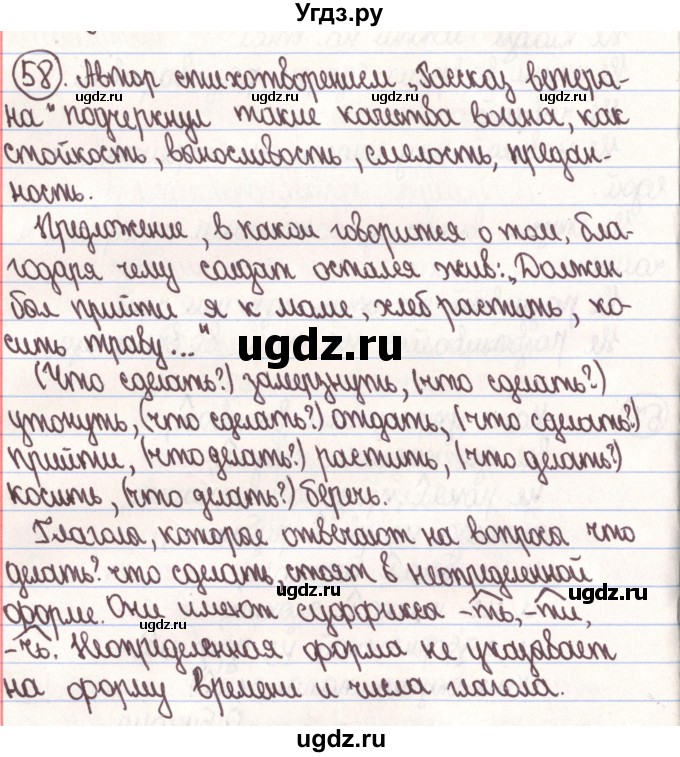 Угдз.ру
58. Автор стихотворением „Рассказ ветера-
на“ подчеркнул такие качества воина, как
стойкость, выносливость, смелость, предан-
ность.
Предложение, в каком говорится о том, бла-
годаря чему солдат остался жив: „Должен
был прийти я к маме, хлеб растить, ко-
сить траву..."
(Что сделать?) замерзнуть, (что сделать?)
утонуть, (что сделать?) отдать, (что сделать?)
прийти, (что делать?) растить, (что делать?)
косить, (что делать?) беречь.
Глаголы, которые отвечают на вопросы что
делать? что сделать, стоят в неопределенной
форме. Они имеют суффиксы -ть, -ти,
-чь. Неопределенная форма не указывает
на форму времени и числа глагола.
ugdz.ru